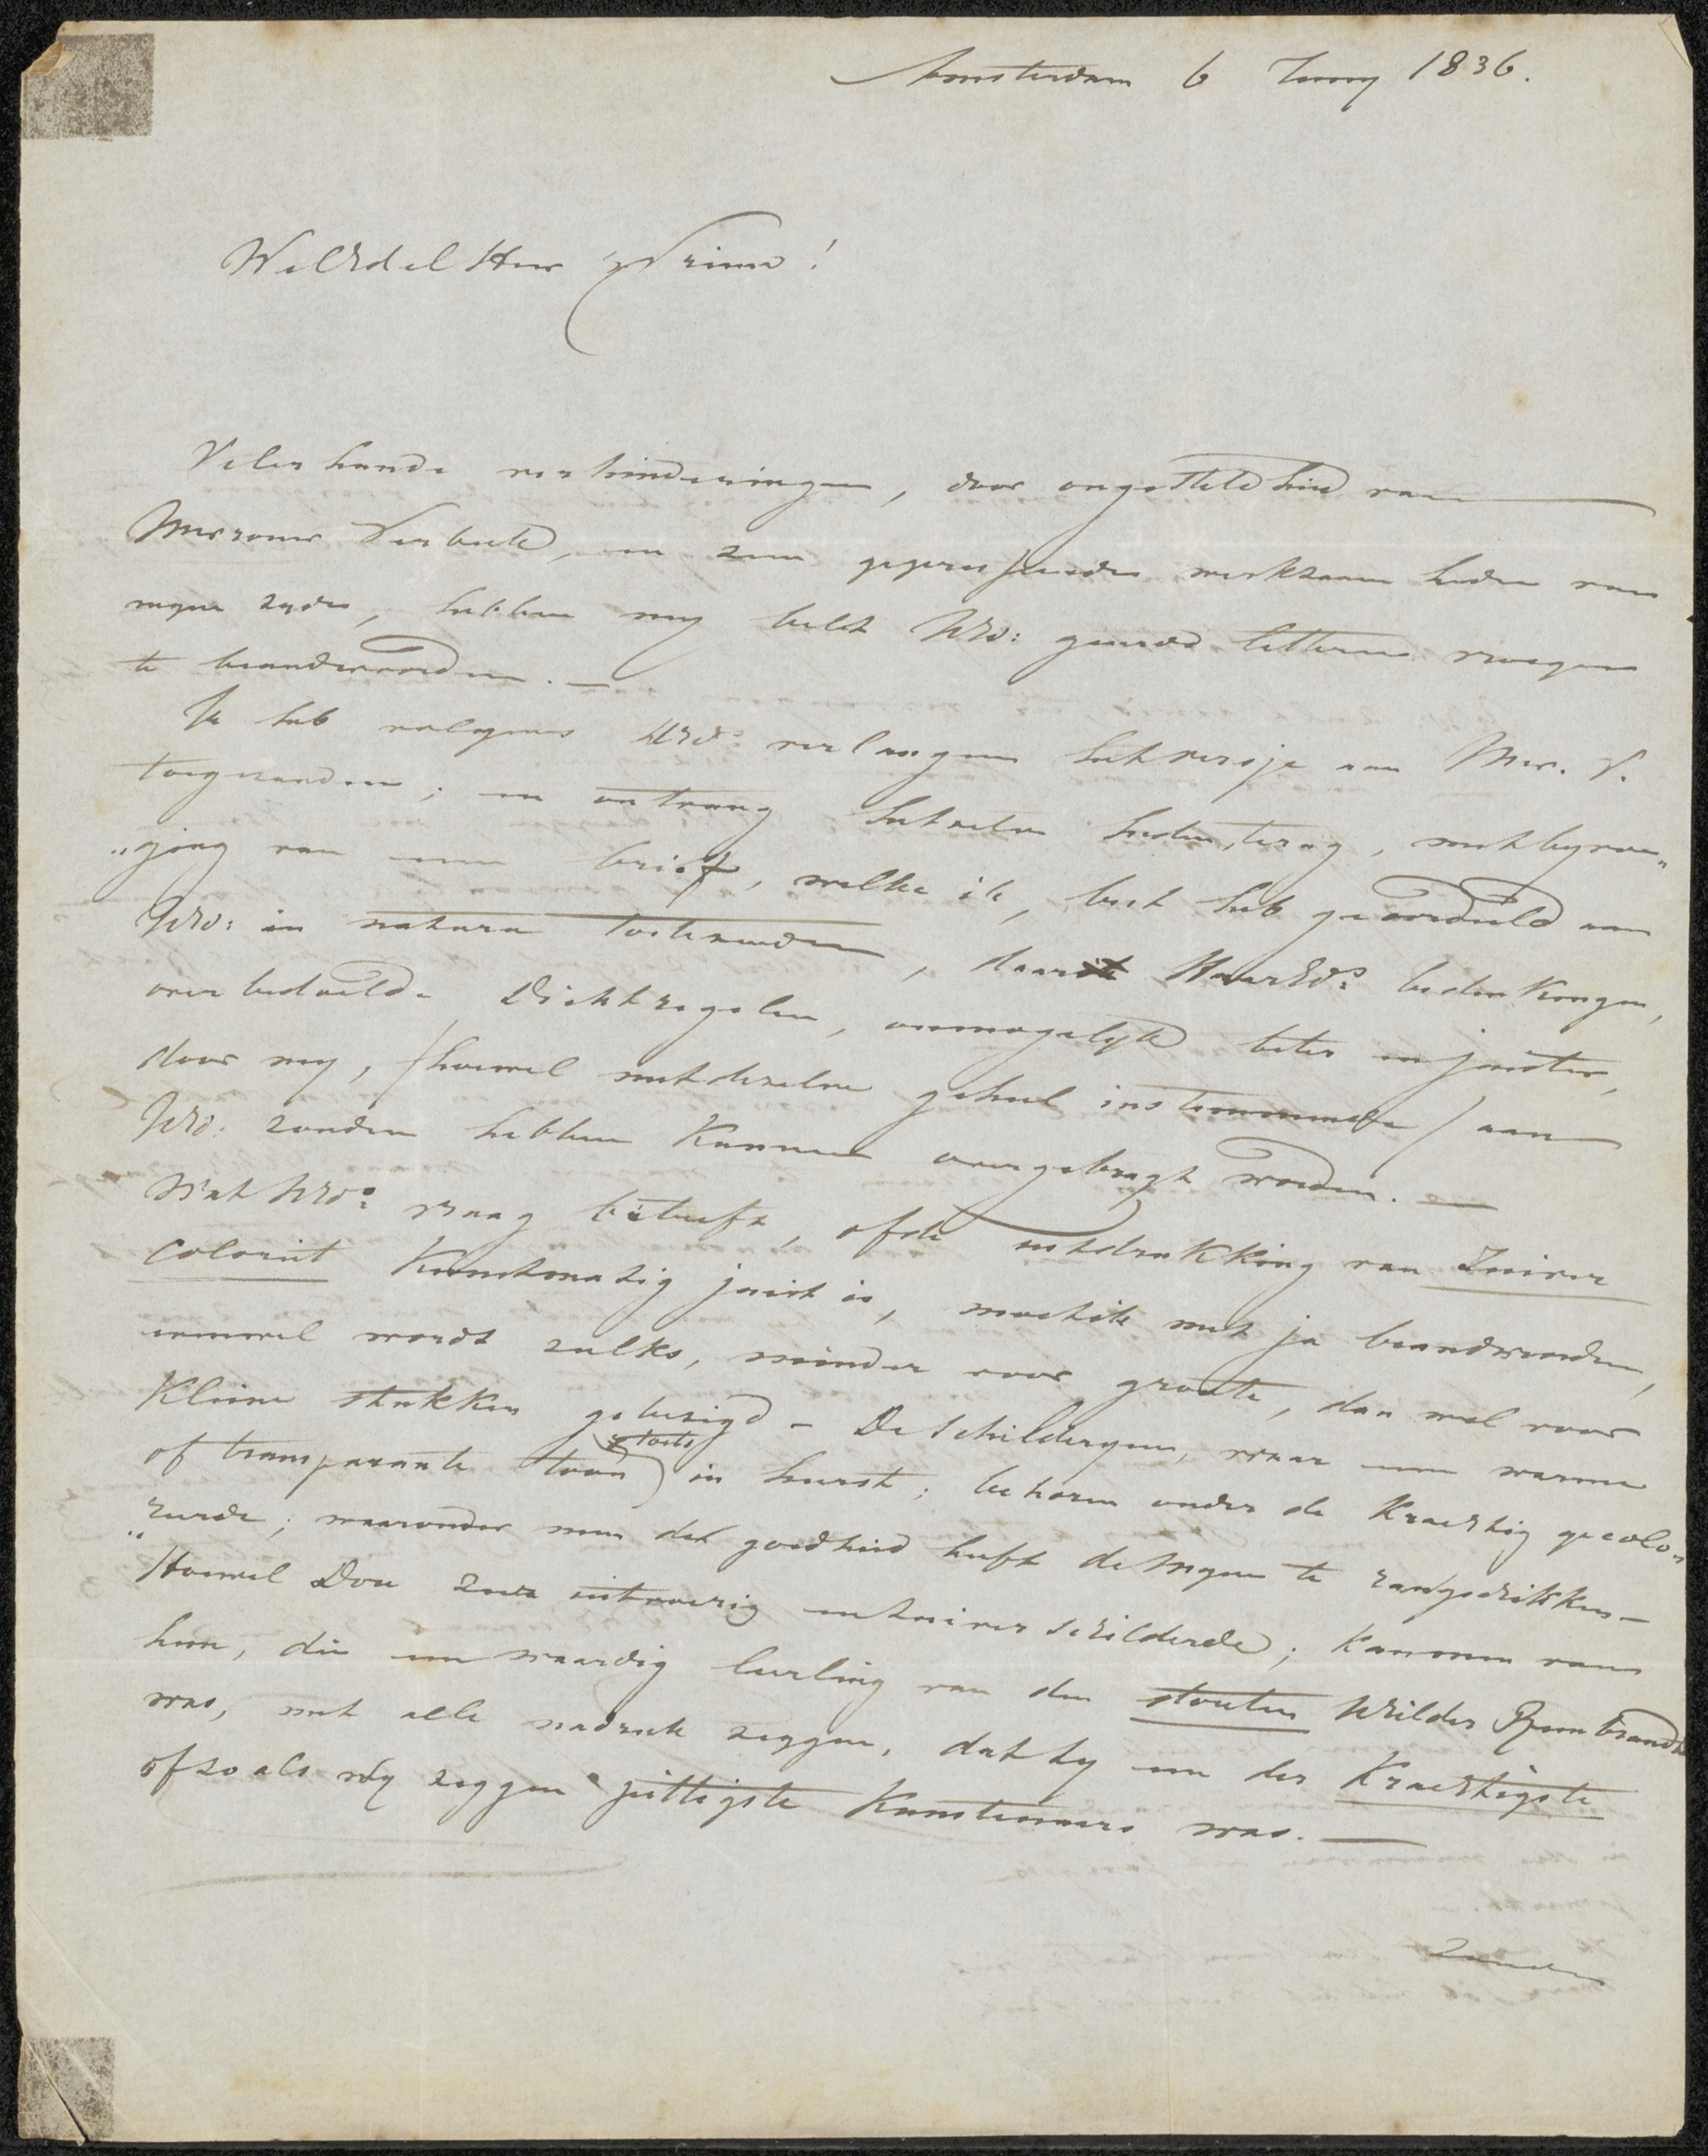 Amsterdam 6 Juny 1836.
WelEdel Heer Vriend!
Velerhande verhinderingen, door ongesteldheid van
Mevrouw Verbeek, en zeer gepresseerde werkzaamheden van
myne zyde, hebben my belet UEd: geëerde letteren vroeger
te beandwoorden. —
Ik heb volgens UEds: verlangen het versje aan Mev. V.
toegezonden; en ontvang hetzelve heden, terug, met byvoe„
„ging van een brief, welke ik, best heb geoordeeld aan
UEd: in natura toetezenden, daar HaarEds: bedenkingen,
over bedoelde Dichtregelen, onmogelyk beter en juister,
door my, /hoewel met dezelve geheel instemmende/ aan
UEd: zouden hebben kunnen overgebragt worden. —
Wat UEds: vraag betreft, of de uitdrukking van Zuiver
coloriet kunstmatig juist is, moet ik met ja beandwoorden,
evenwel wordt zulks, minder voor groote, dan wel voor
kleine stukken gebezigd – De schilderyen, waar een warme
of transparante toon toets in heerst; behoren onder de krachtig gecolo„
„reerde; waaronder men de goedheid heeft de myne te rangschikken —
Hoewel Dou zeer uitvoerig en zuiver schilderde; kan men van
hem, die een waardig leerling van den stouten schilder Rembrandt
was, met alle nadruk zeggen, dat hy een der krachtigste
of zo als wy zeggen pittigste kunstenaars was. —